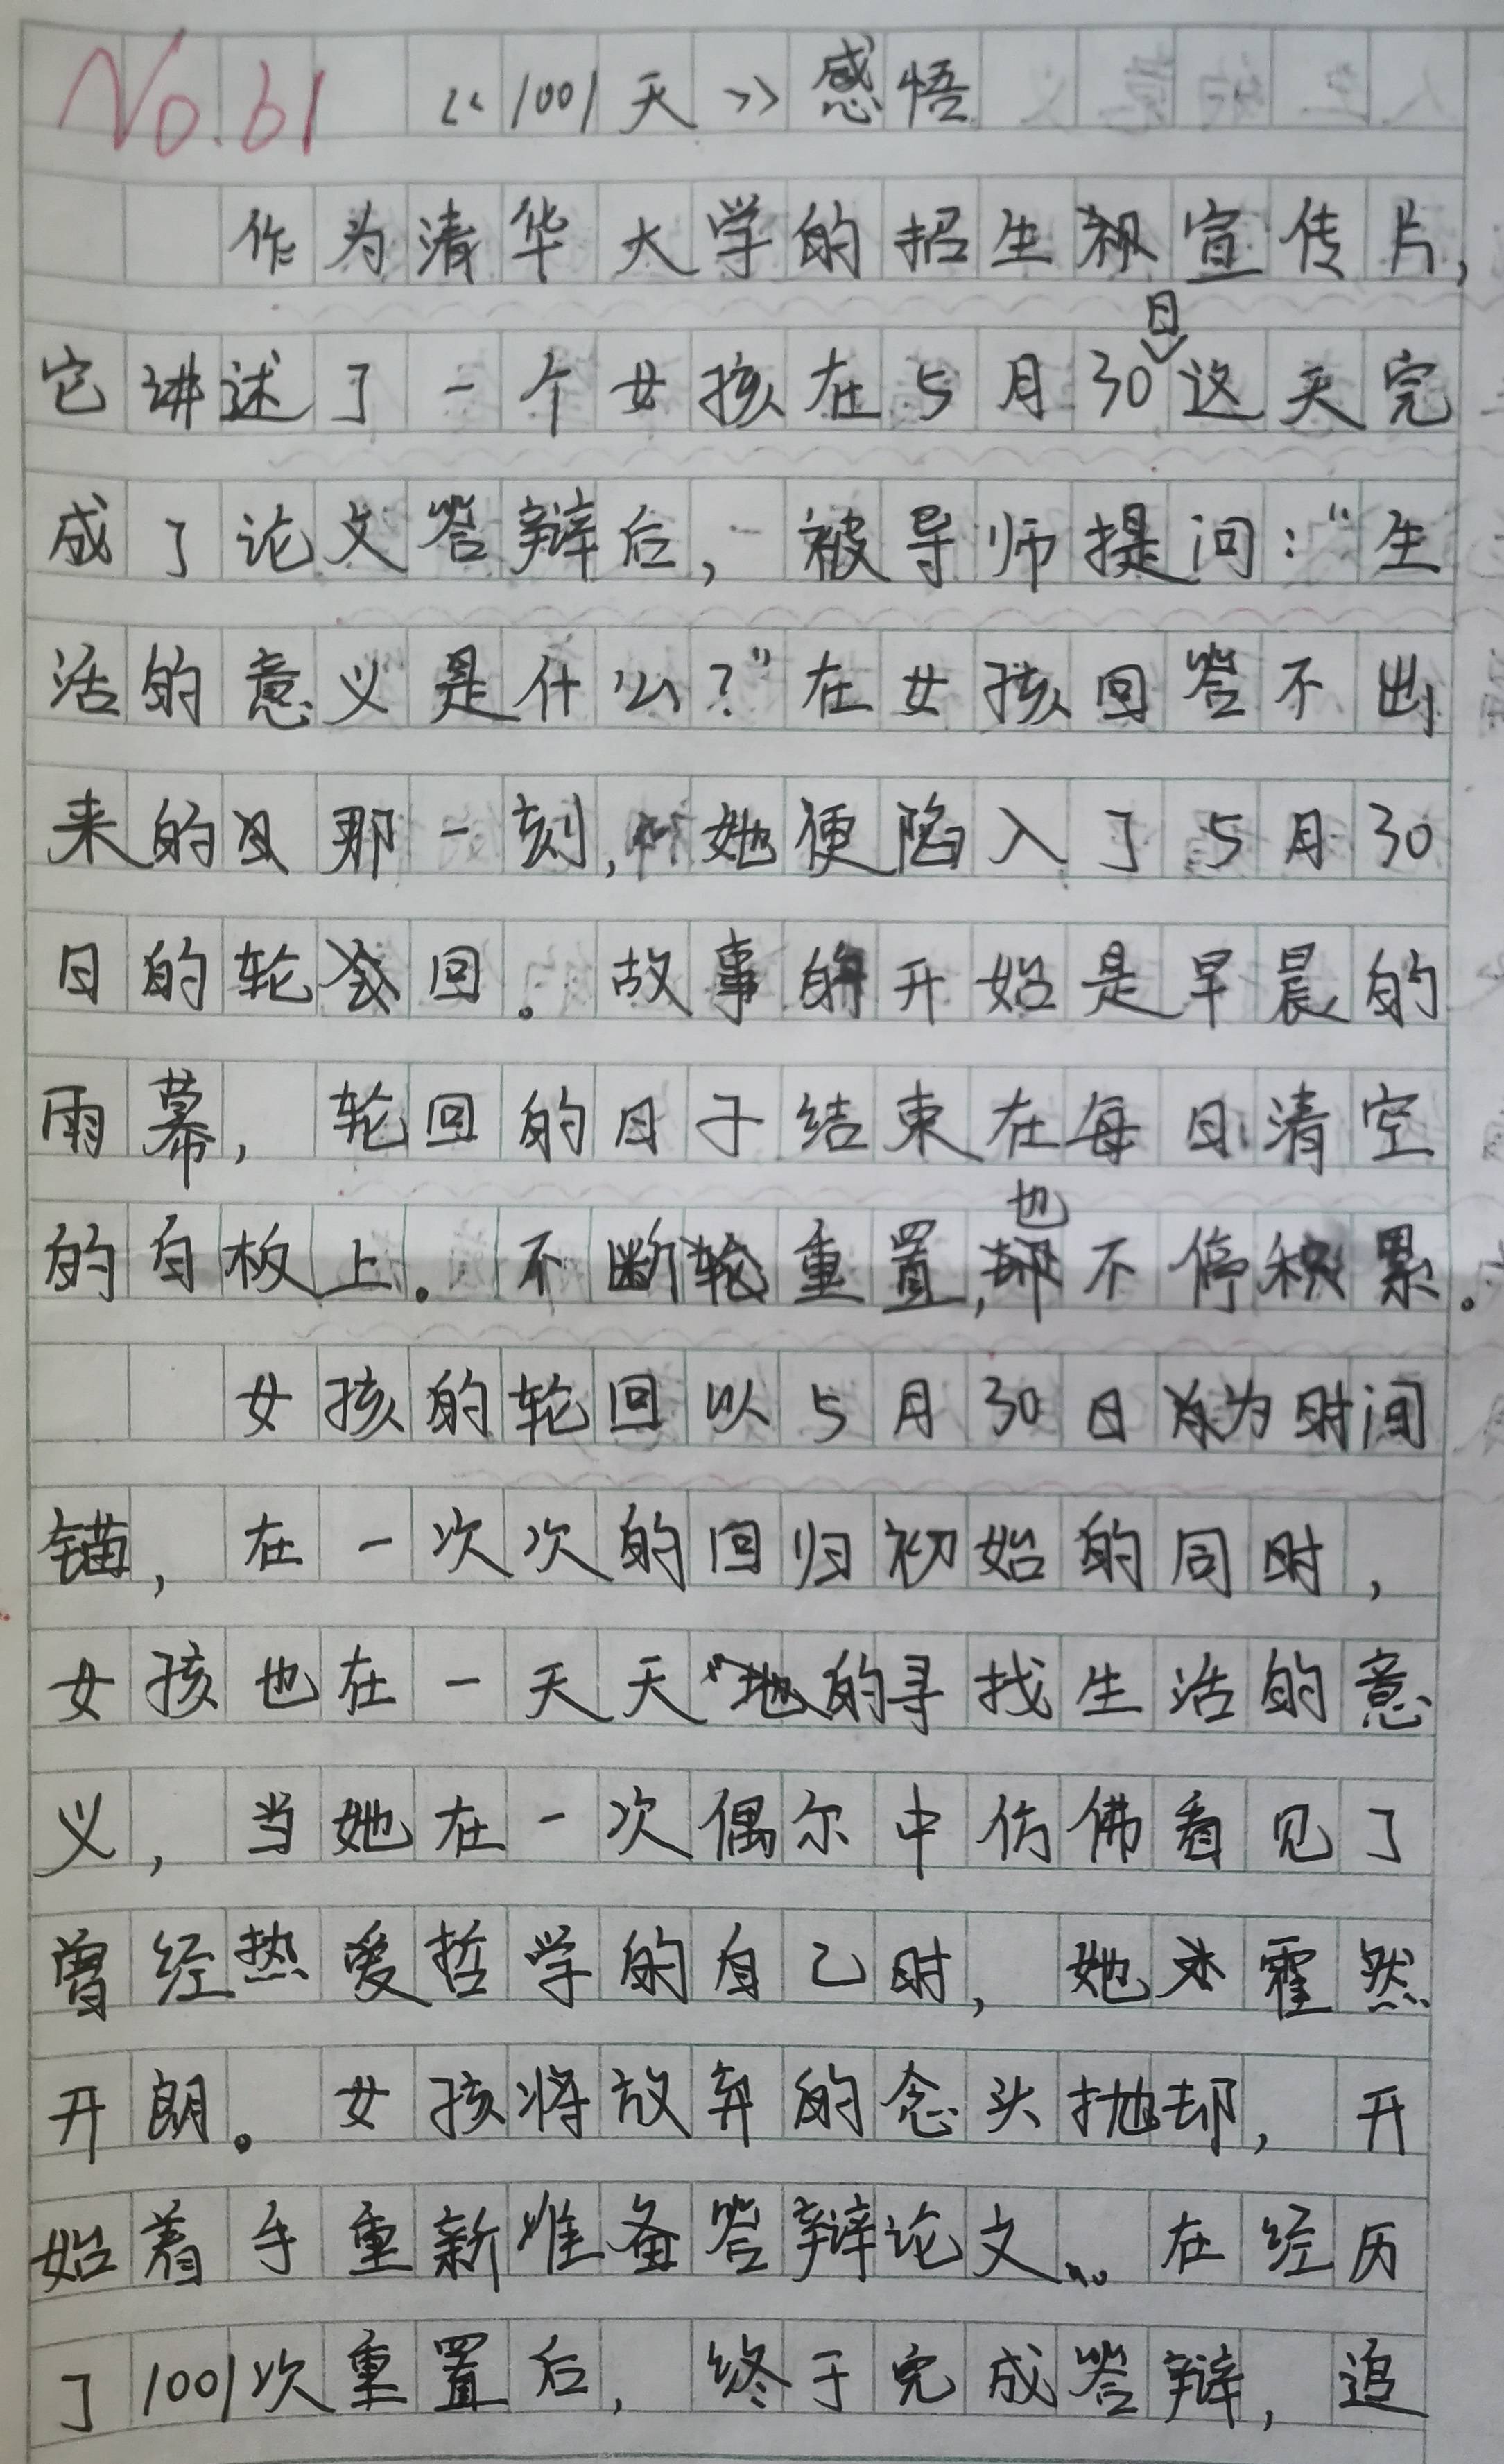 No.61 《1001天》感悟
作为清华大学的招生宣传片，
它讲述了一个女孩在5月30日这天完
成了论文答辩后，被导师提问：“生
活的意义是什么？”在女孩回答不出
来的那一刻，她便陷入了5月30
日的轮回。故事的开始是早晨的
雨幕，轮回的日子结束在每日清空
的白板上。不断重置，也不停积累。
女孩的轮回以5月30日为时间
锚，在一次次的回归初始的同时，
女孩也在一天天的寻找生活的意
义，当她在一次偶尔中仿佛看见了
曾经热爱哲学的自己时，她霍然
开朗。女孩将放弃的念头抛却，开
始着手重新准备答辩论文。在经历
了1001次重置后，终于完成答辩，追